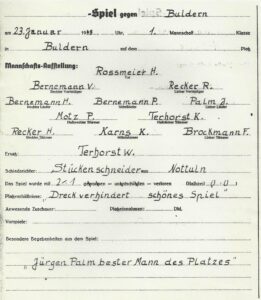 -Spiel gegen Buldern
am 23. Januar 19 Uhr, 1. Mannschaft Klasse
in Buldern auf dem Platz
Mannschafts-Aufstellung:
Rossmeier H.
Tor
Bernemann V. Recker R.
Rechter Verteidiger Linker Verteidiger
Bernemann H. Bernemann P. Palm J.
Rechter Läufer Mittelläufer Linker Läufer
Hotz P. Terhorst K.
Halbrechter Stürmer Halblinker Stürmer
Recker H. Karns K. Brockmann F.
Rechter Stürmer Mittelstürmer Linker Stürmer
Ersatz: Terhorst W.
Schiedsrichter: Stückenschneider aus: Nottuln
Das Spiel wurde mit 2:1 gewonnen - unentschieden - verloren (Halbzeit 0:0)
Platzverhältnisse: "Dreck verhindert schönes Spiel"
Anwesende Zuschauer: Platzeinnahme: DM.
Vorspiele:
Besondere Begebenheiten aus dem Spiel:
"Jürgen Palm bester Mann des Platzes"